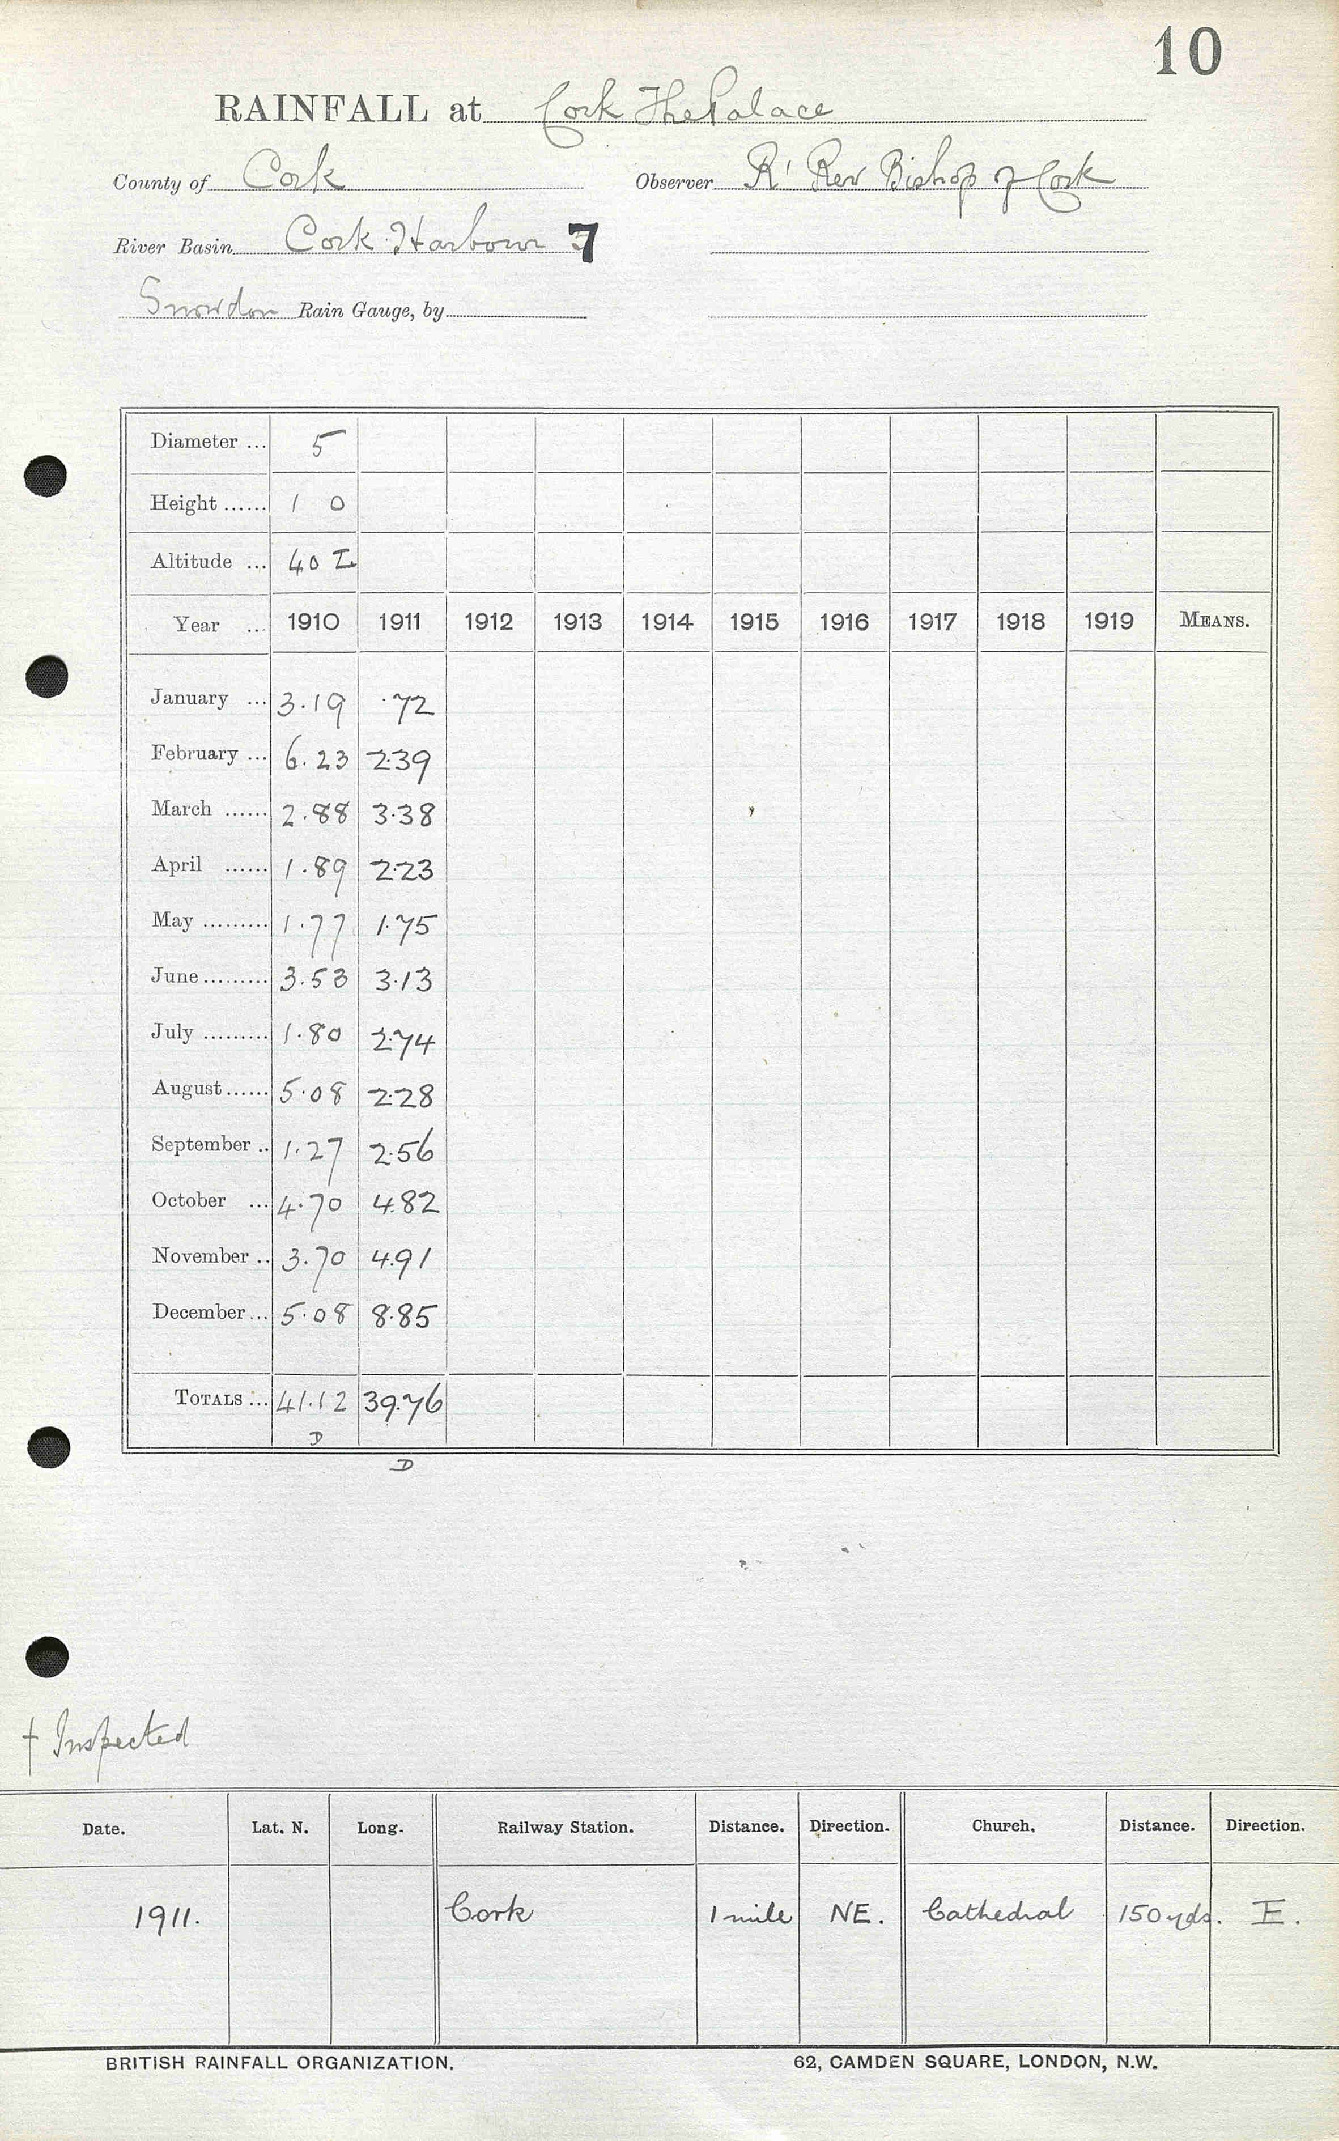 10
RAINFALL at Cork The Palace
County of Cork Observer Rt Rev Bishop of Cork
River Basin Cork Harbour 7
Snowdon Rain Gauge, by
Diameter ... 5
Height ...... 1 0
Altitude ... 40 I
Year ... 1910 1911 1912 1913 1914 1915 1916 1917 1918 1919 MEANS.
January ... 3.19 .72
February ... 6.23 2.39
March ...... 2.88 3.38
April ...... 1.89 2.23
May ......... 1.77 1.75
June ......... 3.53 3.13
July ......... 1.80 2.74
August ...... 5.08 2.28
September .. 1.27 2.56
October ... 4.70 4.82
November .. 3.70 4.91
December ... 5.08 8.85
TOTALS ... 41.12 39.76
D
D
† Inspected
Date. Lat. N. Long. Railway Station. Distance. Direction. Church. Distance. Direction.
1911. Cork 1 mile NE. Cathedral 150 yds. E.
BRITISH RAINFALL ORGANIZATION. 62, CAMDEN SQUARE, LONDON, N.W.